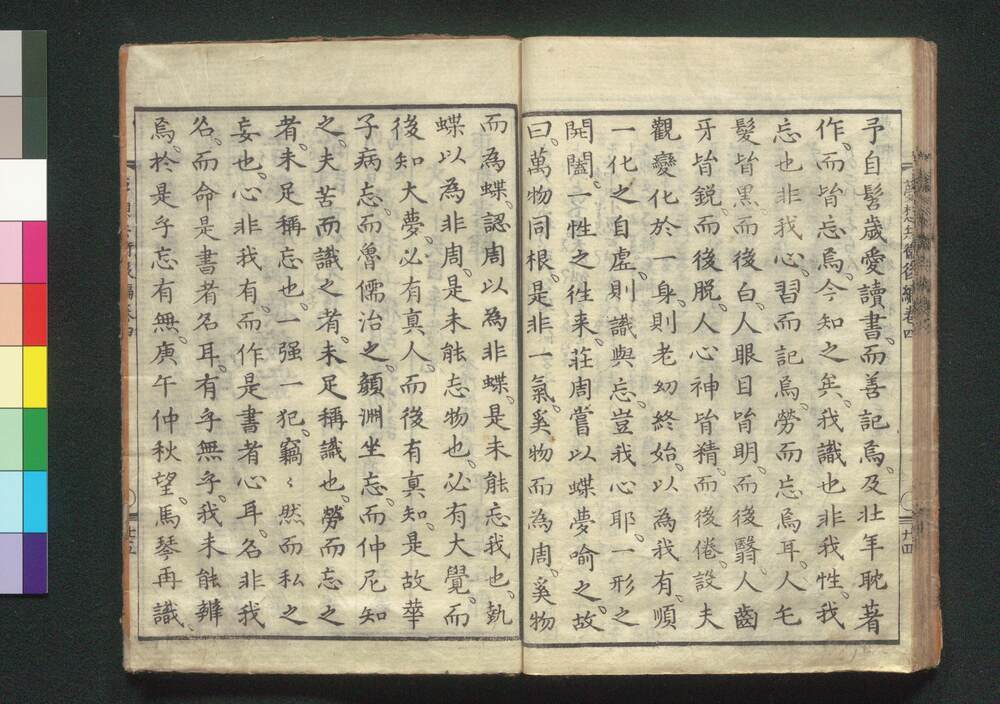 予自髫歳愛讀書。而善記焉。及壮年耽著
作。而皆忘焉。今知之矣。我識也非我性。我
忘也非我心。習而記焉。勞而忘焉耳。人毛
髮皆黑。而後白。人眼目皆明。而後翳。人齒
牙皆鋭。而後脱。人心神皆精。而後倦。設夫
觀變化於一身。則老幼終始。以為我有。順
一化之自虚。則識與忘。豈我心耶。一形之
開闔。一性之徃来。莊周嘗以蝶夢喻之。故
曰。萬物同根。是非一氣。奚物而為周。奚物
而為蝶。認周以為非蝶。是未能忘我也。執
蝶以為非周。是未能忘物也。必有大覺。而
後知大夢。必有真人。而後有真知。是故華
子病忘。而魯儒治之。顔淵坐忘。而仲尼知
之。夫苦而識之者。未足稱識也。勞而忘之
者。未足稱忘也。一强一犯。竊〻然而私之
妄也。心非我有。而作是書者心耳。名非我
名。而命是書者名耳。有乎無乎。我未能辨
焉。於是乎忘有無。庚午仲秋望。馬琴再識。
夢想兵衞後編卷四
廿四
廿五